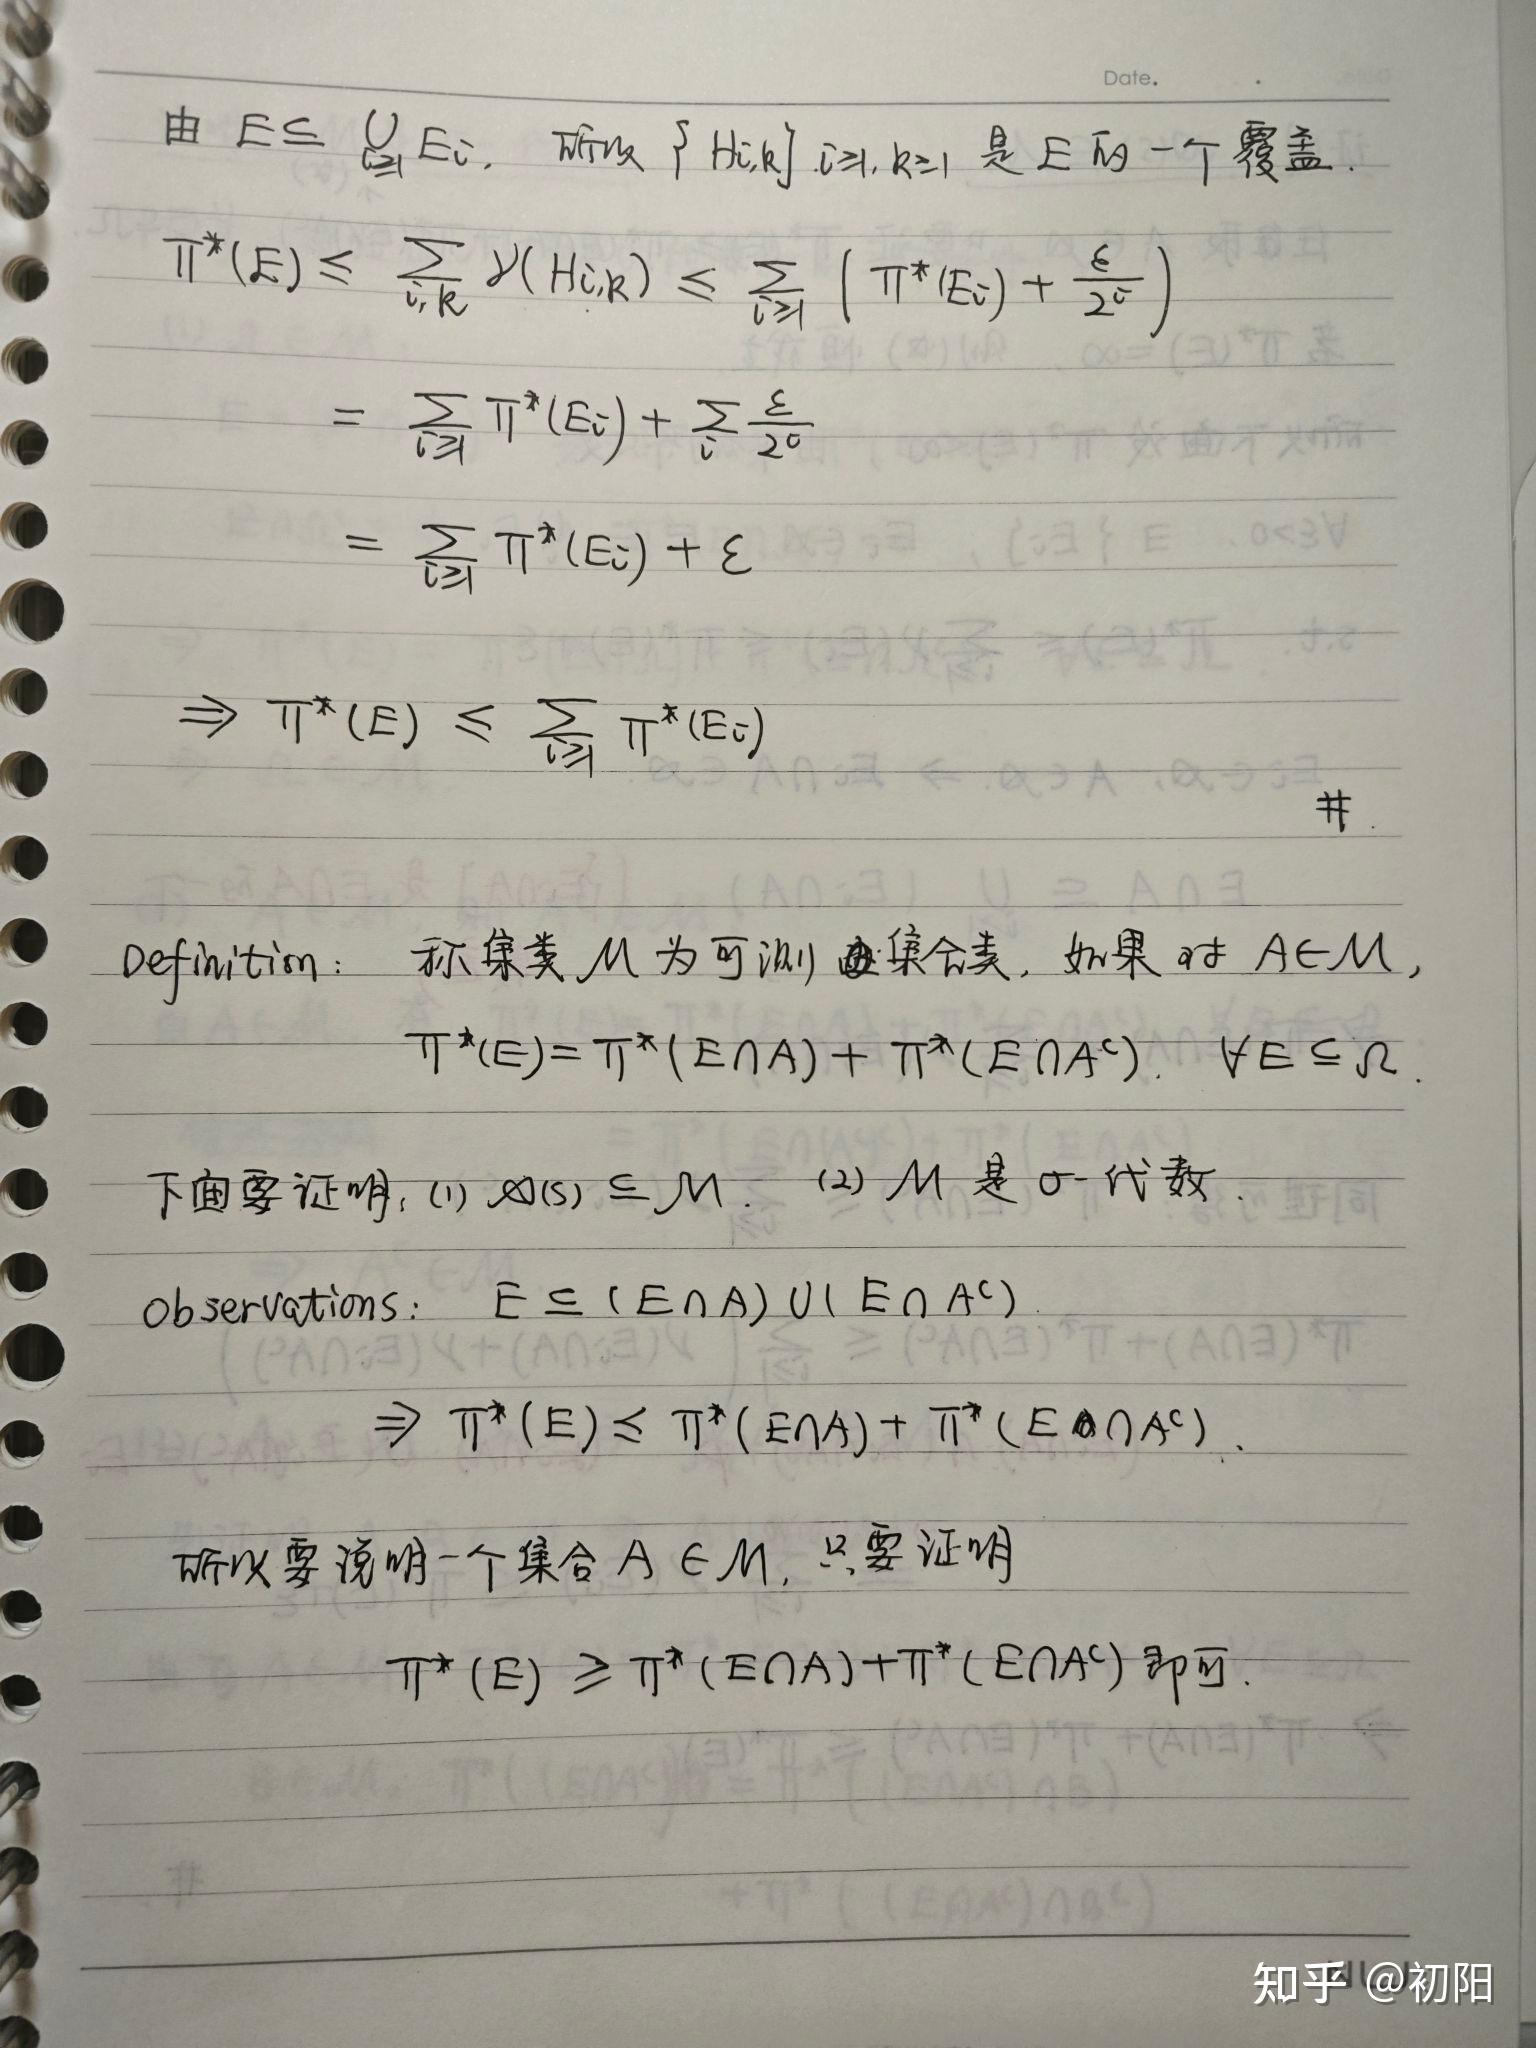 Date.
由 E⊆ ⋃_{i≥1} Ei, 所以 {Hi,k} i≥1, k≥1 是 E 的一个覆盖.
π*(E) ≤ ∑_{i,k} γ(Hi,k) ≤ ∑_{i≥1} ( π*(Ei) + ε/2^i )
= ∑_{i≥1} π*(Ei) + ∑_i ε/2^i
= ∑_{i≥1} π*(Ei) + ε
⇒ π*(E) ≤ ∑_{i≥1} π*(Ei)
#.
Definition: 称集类 M 为可测集合类, 如果对 A∈M,
π*(E)= π*(E∩A) + π*(E∩A^c). ∀E⊆Ω.
下面要证明: (1) A(S) ⊆ M. (2) M 是 σ-代数.
Observations: E ⊆ (E∩A) ∪ ( E∩A^c).
⇒ π*(E) ≤ π*(E∩A) + π*(E∩A^c).
所以要说明一个集合 A∈M, 只要证明
π*(E) ≥ π*(E∩A)+π*(E∩A^c) 即可.
知乎 @初阳